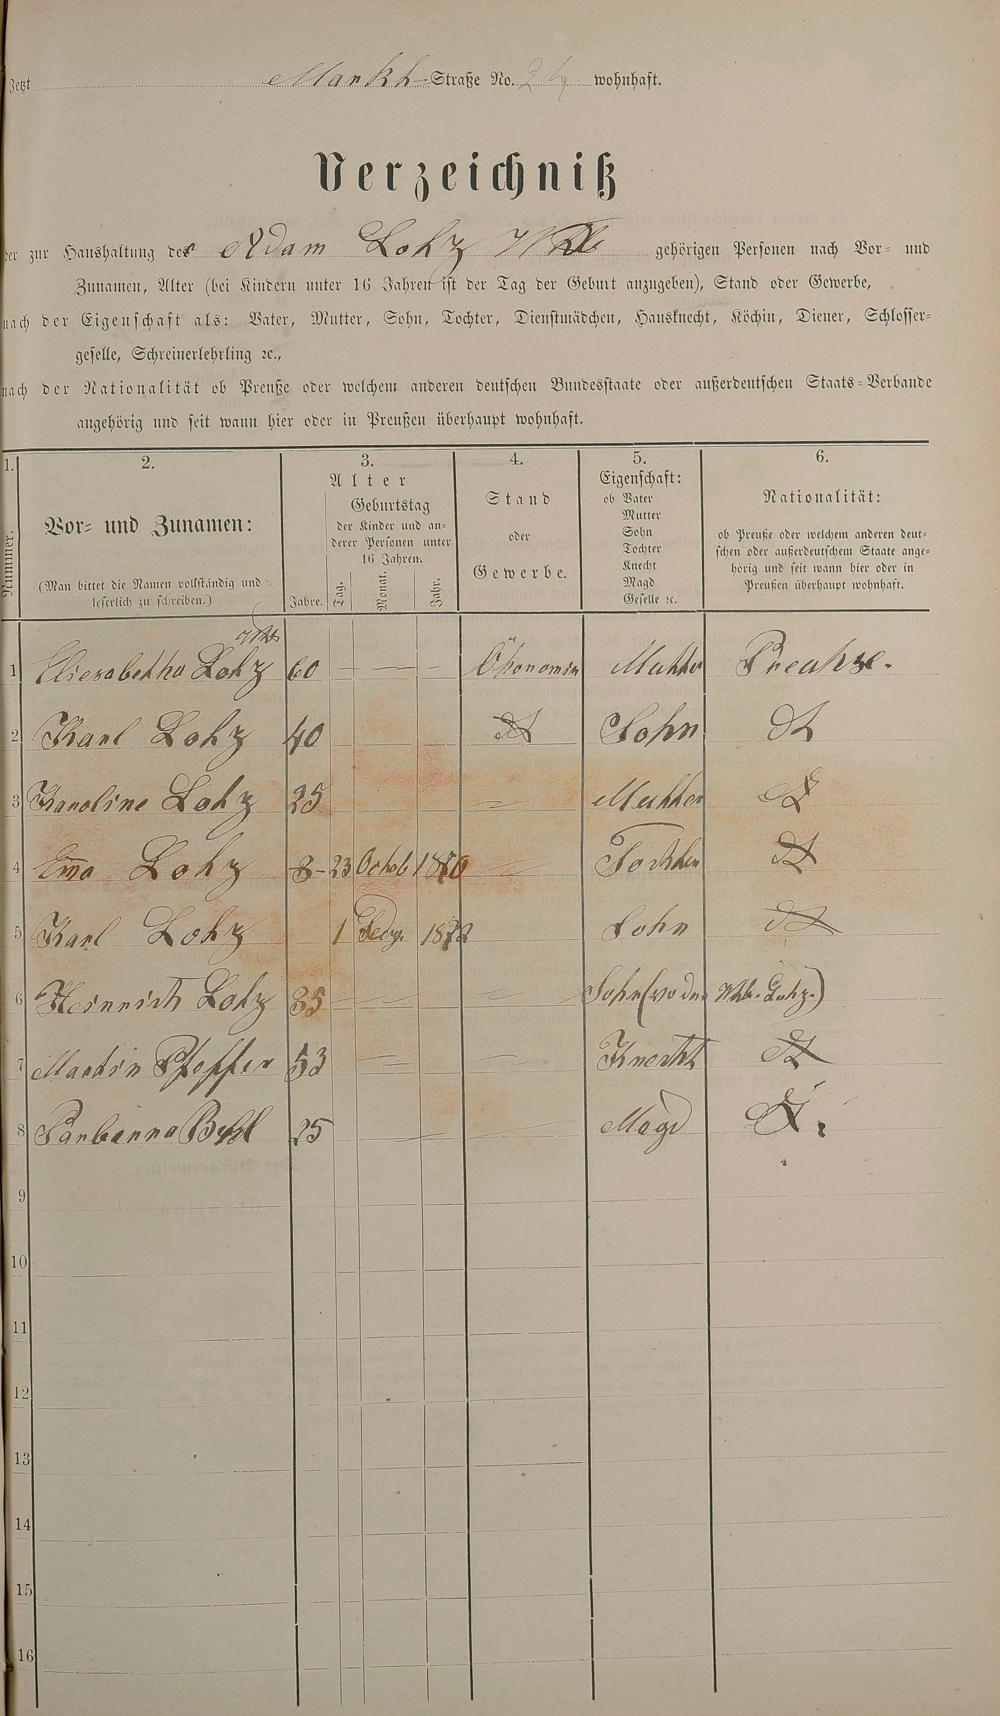 Jetzt Markt-Straße No. wohnhaft.
Verzeichniß
der zur Haushaltung der Adam Lotz Wtb gehörigen Personen nach Vor- und
Zunamen, Alter (bei Kindern unter 16 Jahren ist der Tag der Geburt anzugeben), Stand oder Gewerbe,
nach der Eigenschaft als: Vater, Mutter, Sohn, Tochter, Dienstmädchen, Hausknecht, Köchin, Diener, Schlosser-
geselle, Schreinerlehrling ꝛc.,
nach der Nationalität ob Preuße oder welchem anderen deutschen Bundesstaate oder außerdeutschen Staats-Verbande
angehörig und seit wann hier oder in Preußen überhaupt wohnhaft.
1. 2. 3. 4. 5. 6.
Nummer.
Vor- und Zunamen:
(Man bittet die Namen vollständig und
leserlich zu schreiben.)
Alter
Geburtstag
der Kinder und an-
derer Personen unter
16 Jahren.
Jahre. Tag. Monat. Jahr.
Stand
oder
Gewerbe.
Eigenschaft:
ob Vater
Mutter
Sohn
Tochter
Knecht
Magd
Geselle ꝛc.
Nationalität:
ob Preuße oder welchem anderen deut-
schen oder außerdeutschem Staate ange-
hörig und seit wann hier oder in
Preußen überhaupt wohnhaft.
Wtb
1 Elisabetha Lotz 60 — — — Ökonomin Mutter Preuße.
2 Karl Lotz 40 Sohn
3 Karoline Lotz 25 Mutter
4 Ema Lotz 3 - 23 Octob 1870 Tochter
5 Karl Lotz 1 1872 Sohn
6 Heinrich Lotz 35 Sohn (von der Wtb. Lotz.)
7 Martin Pfeffer 53 Knecht
8 25 Magd
9
10
11
12
13
14
15
16